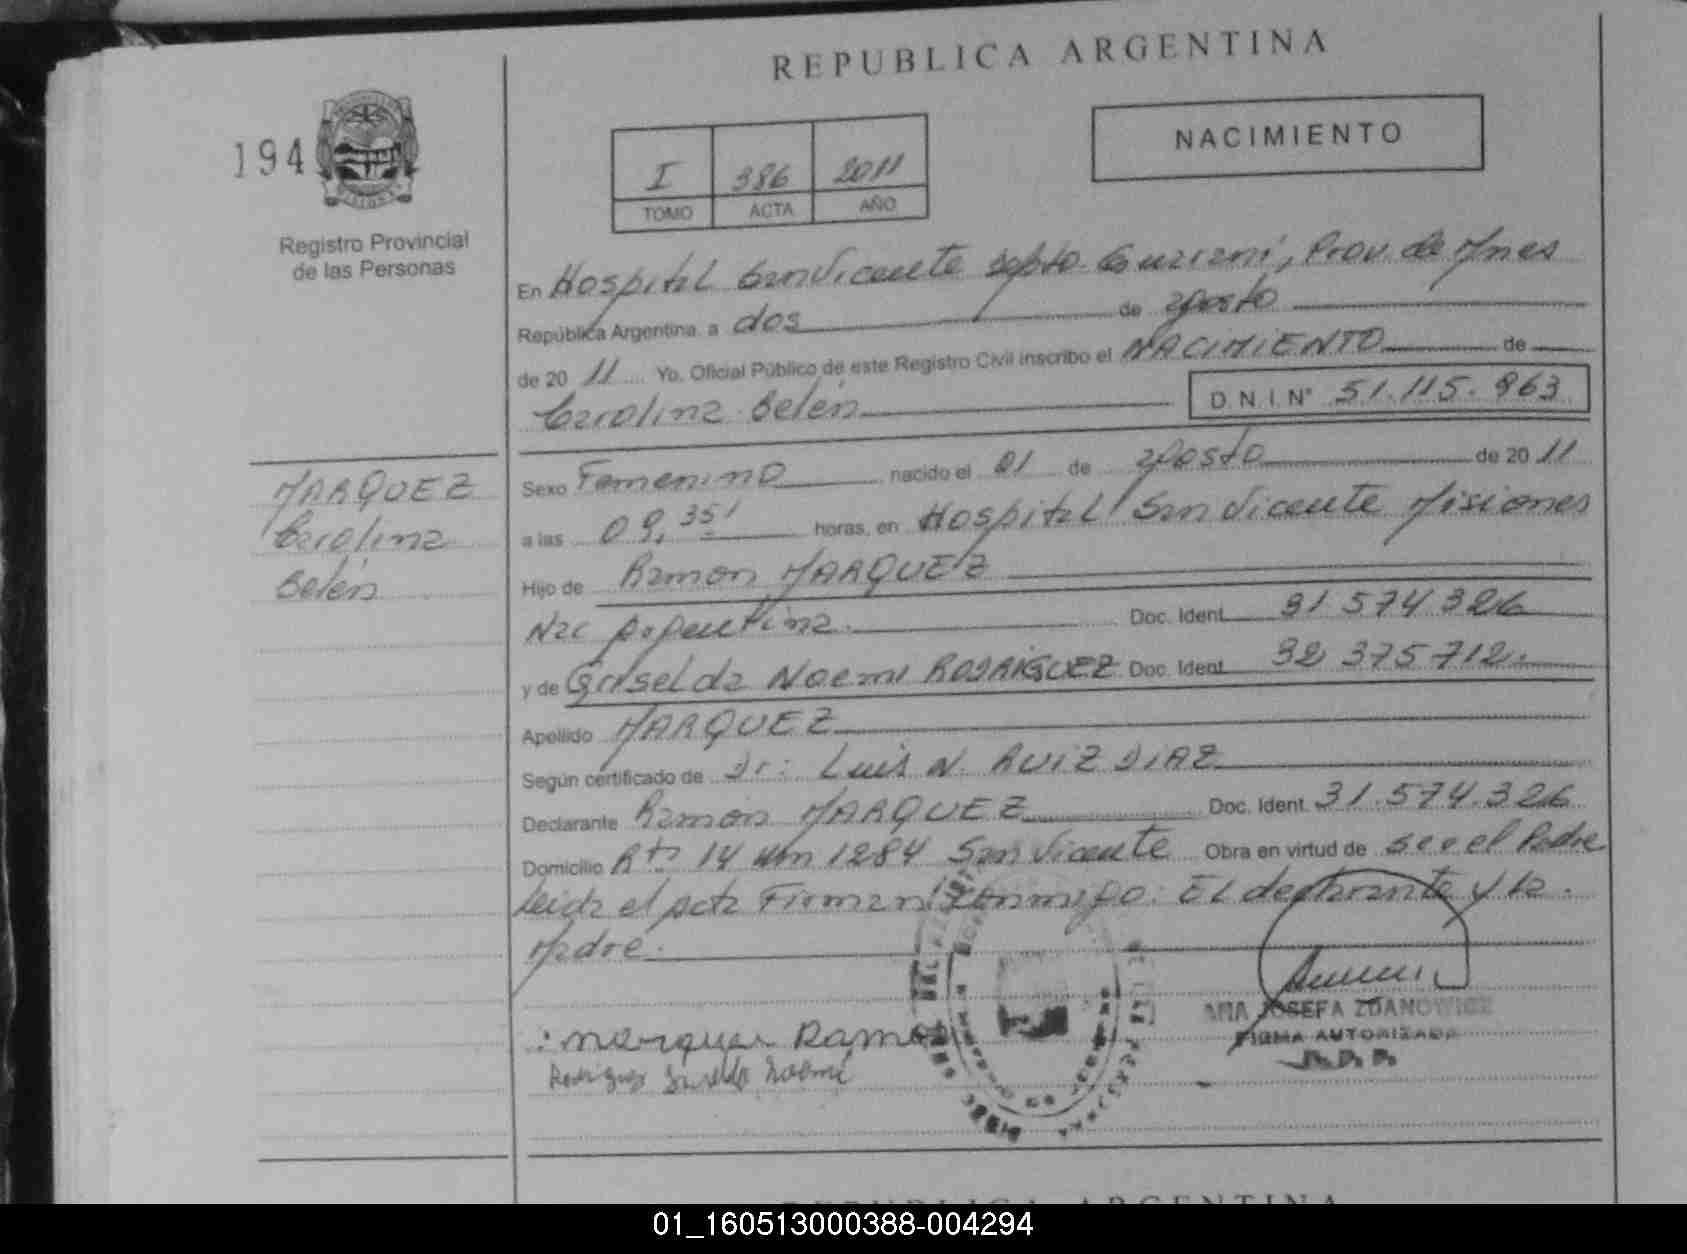 REPUBLICA ARGENTINA
194
NACIMIENTO
I 386 2011
TOMO ACTA AÑO
Registro Provincial
de las Personas
En Hospital San Vicente Depto. Guaraní, Prov. de Mnes
República Argentina. a dos de agosto
de 20 11 Yo. Oficial Público de este Registro Civil inscribo el NACIMIENTO de
Carolina Belén D.N.I.N° 51.115.963
MARQUEZ
Carolina
Belén
Sexo Femenino nacido el 01 de agosto de 20 11
a las 09,35' horas, en Hospital San Vicente Misiones
Hijo de Ramon MARQUEZ
Nac Argentina. Doc. Ident. 31 574 326
y de Griselda Noemi RODRIGUEZ Doc. Ident. 32 375 712.
Apellido MARQUEZ
Según certificado de Dr: Luis N. RUIZ DIAZ
Declarante Ramón MARQUEZ Doc. Ident. 31.574.326
Domicilio Rta 14 Km 1284 San Vicente Obra en virtud de ser el Padre
Leida el acta Firman conmigo: El declarante y la
Madre.
: marquez Ramon
Rodriguez Griselda Noemí
JOSEFA ZDANOWICZ
FIRMA AUTORIZADA
REPUBLICA ARGENTINA
01_160513000388-004294